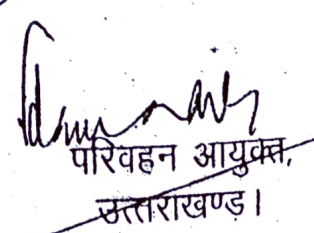 परिवहन आयुक्त,
उत्तराखण्ड़।